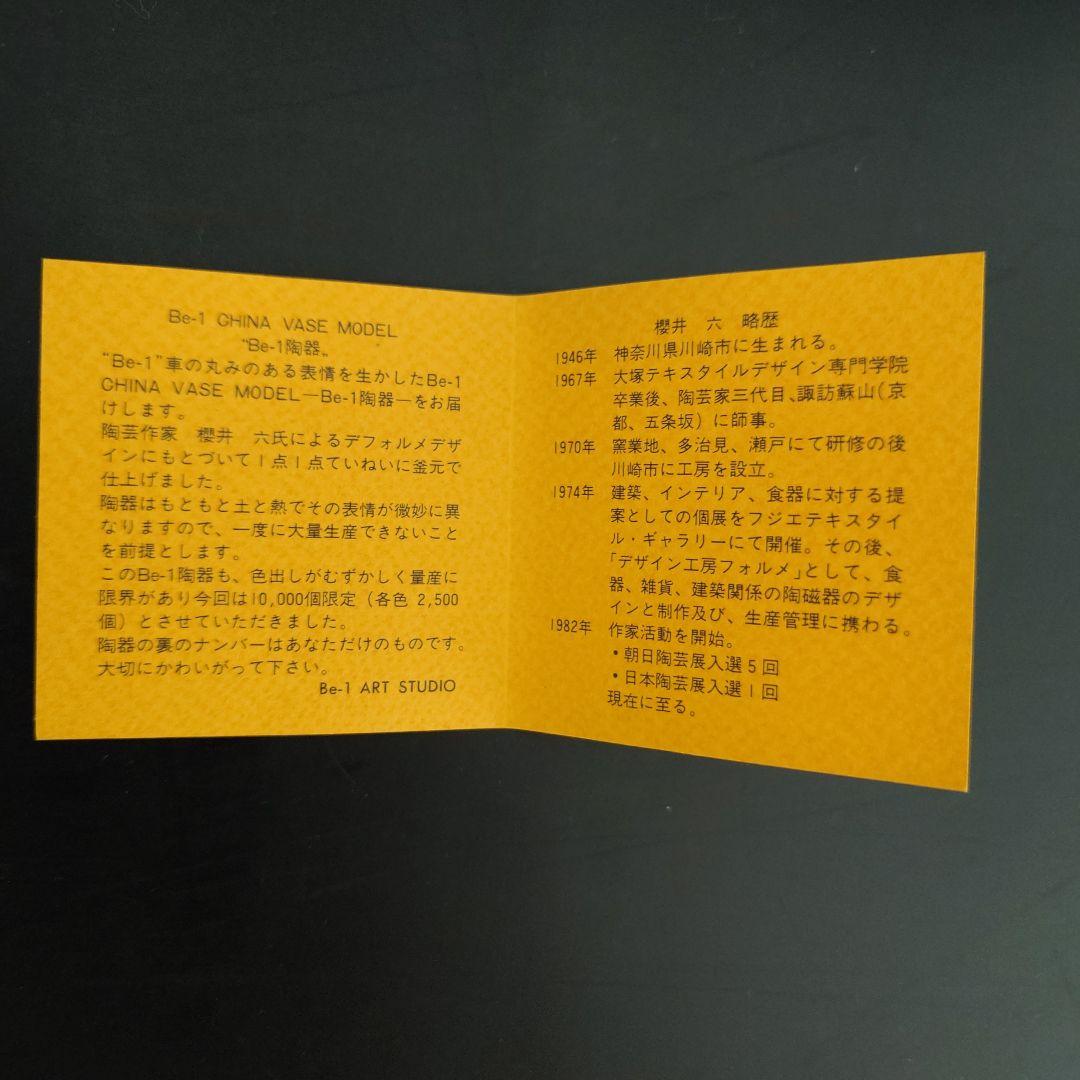 Be-1 CHINA VASE MODEL
"Be-1陶器„
"Be-1"車の丸みのある表情を生かしたBe-1
CHINA VASE MODEL—Be-1陶器—をお届
けします。
陶芸作家　櫻井　六氏によるデフォルメデザ
インにもとづいて1点1点ていねいに釜元で
仕上げました。
陶器はもともと土と熱でその表情が微妙に異
なりますので、一度に大量生産できないこと
を前提とします。
このBe-1陶器も、色出しがむずかしく量産に
限界があり今回は10,000個限定（各色 2,500
個）とさせていただきました。
陶器の裏のナンバーはあなただけのものです。
大切にかわいがって下さい。
Be-1 ART STUDIO
櫻井　六　略歴
1946年　神奈川県川崎市に生まれる。
1967年　大塚テキスタイルデザイン専門学院
卒業後、陶芸家三代目、諏訪蘇山（京
都、五条坂）に師事。
1970年　窯業地、多治見、瀬戸にて研修の後
川崎市に工房を設立。
1974年　建築、インテリア、食器に対する提
案としての個展をフジエテキスタイ
ル・ギャラリーにて開催。その後、
「デザイン工房フォルメ」として、食
器、雑貨、建築関係の陶磁器のデザ
インと制作及び、生産管理に携わる。
1982年　作家活動を開始。
・朝日陶芸展入選5回
・日本陶芸展入選1回
現在に至る。